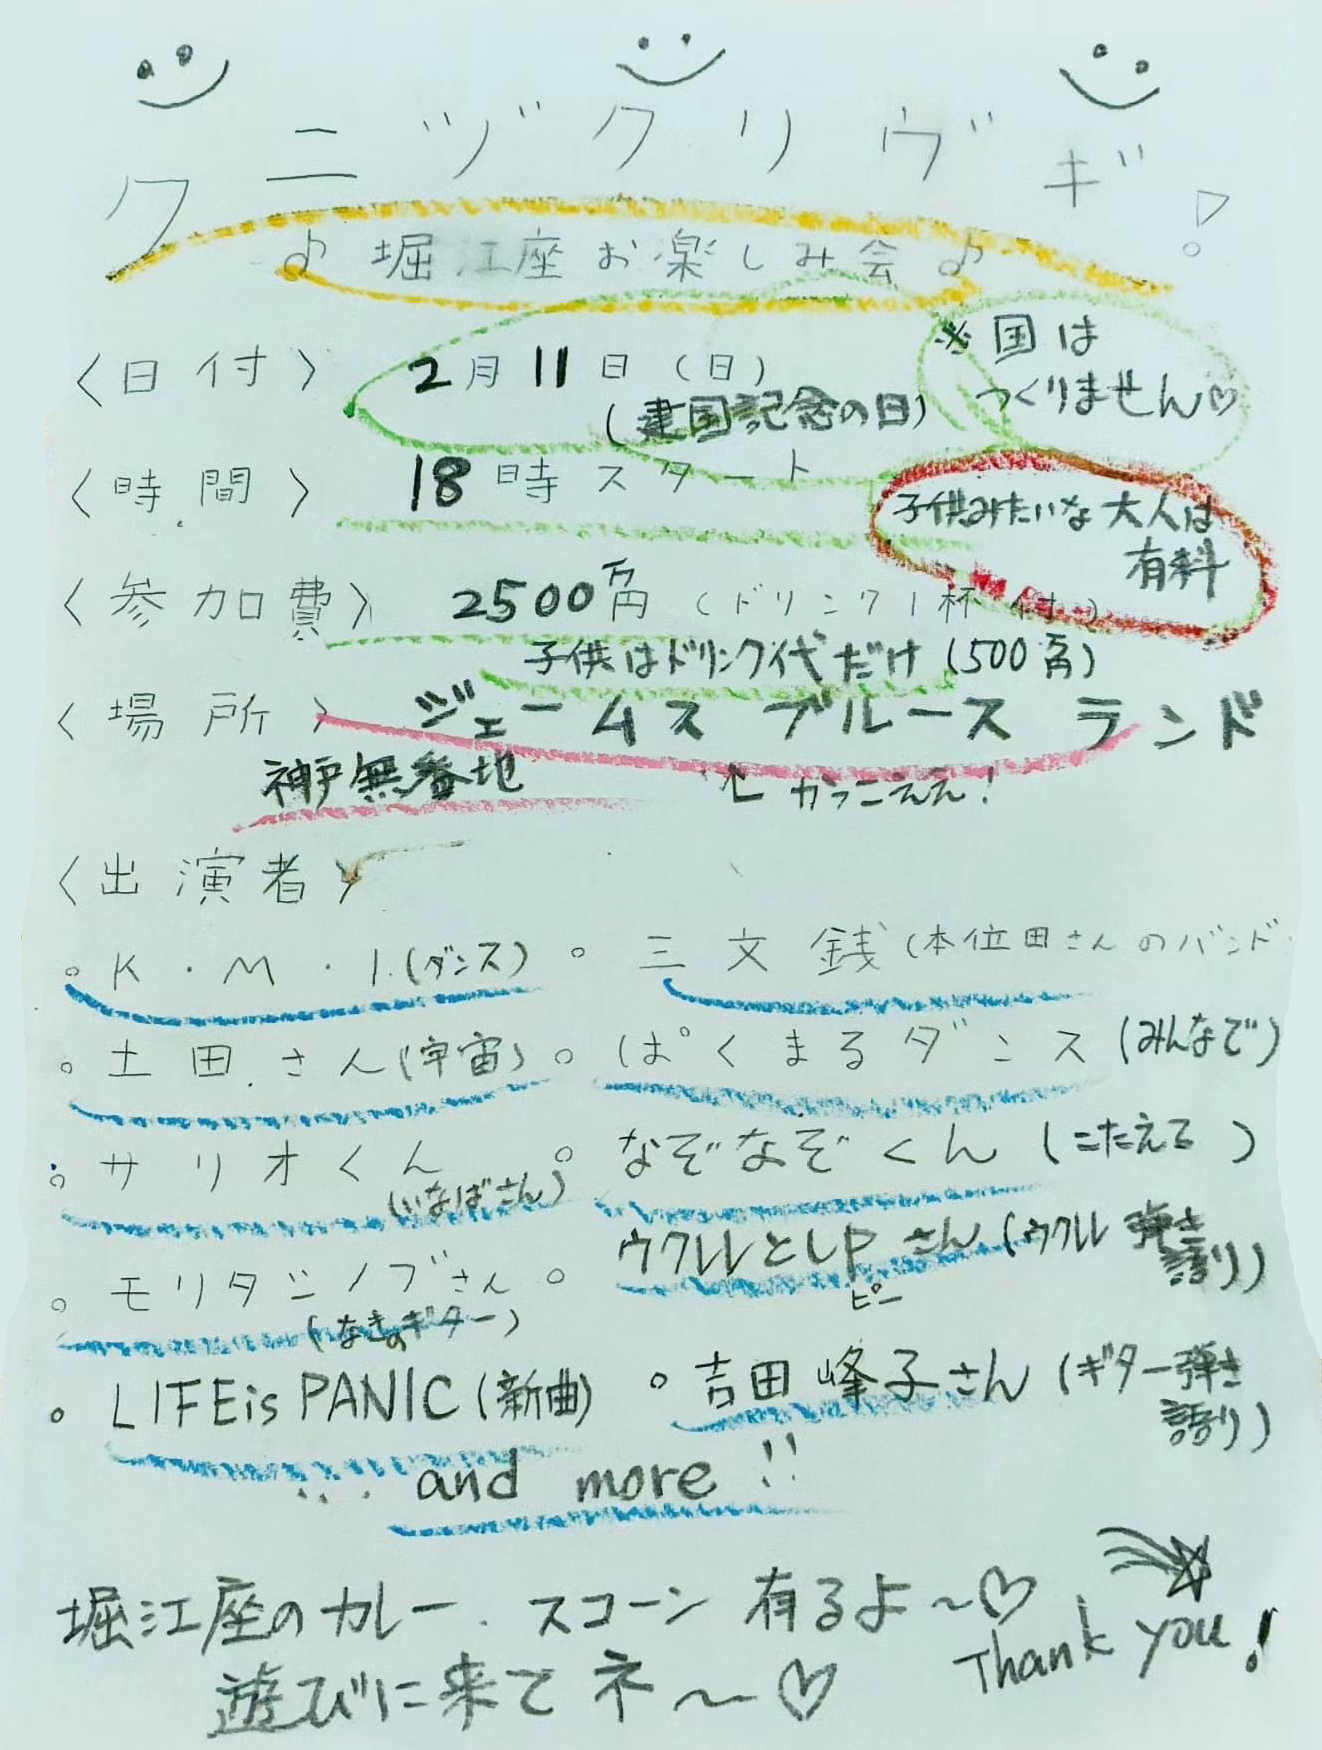 クニヅクリヴギ!
♪堀江座お楽しみ会♪
〈日付〉 2月11日(日)
(建国記念の日)
※国は
つくりません♡
〈時間〉 18時スタート
子供みたいな大人は
有料
〈参加費〉 2500万円(ドリンク1杯付)
子供はドリンク代だけ(500万円)
〈場所〉 ジェームスブルースランド
神戸無番地
↑かっこええ!
〈出演者〉
。K・M・I.(ダンス) 。三文銭(本位田さんのバンド
。土田さん(宇宙) 。ぱくまるダンス(みんなで)
。サリオくん 。なぞなぞくん(こたえる)
(いなばさん)
。モリタシノブさん 。ウクレレとLPさん(ウクレレ弾き語り)
ピー
(なきのギター)
。LIFEisPANIC(新曲) 。吉田峰子さん(ギター弾き語り)
... and more!!
堀江座のカレー、スコーン有るよ〜♡
遊びに来てネ〜♡
Thank you!